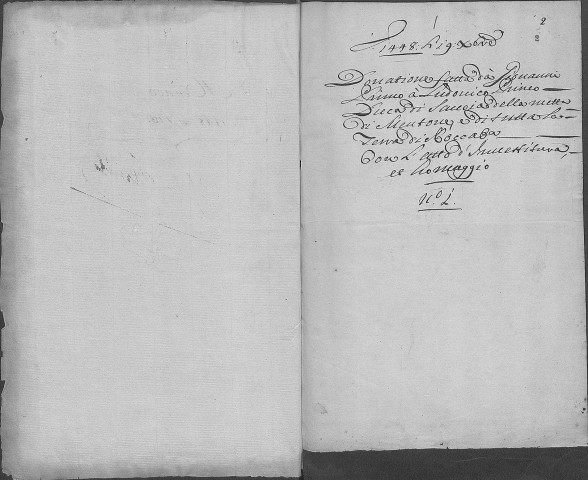 2
1448. L 19 Xbre
Donatione fatta da Giovanni
Primo à Ludovico Primo
Duca di Savoja della metta
di Mentone, e di tutta la
Terra di Roccab.a
Con l'atto d'Investitura,
et Homaggio
N.o 1.